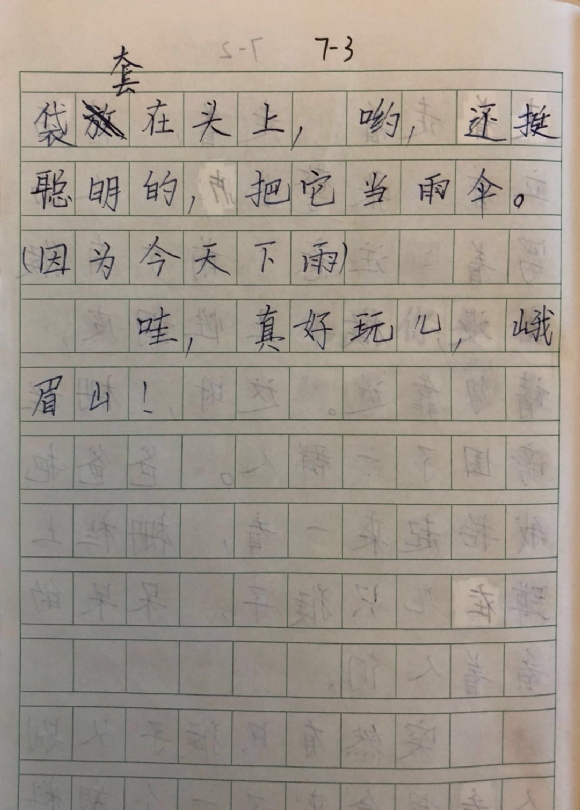 7-3
袋套在头上，哟，还挺
聪明的，把它当雨伞。
(因为今天下雨)
哇，真好玩儿，峨
眉山！